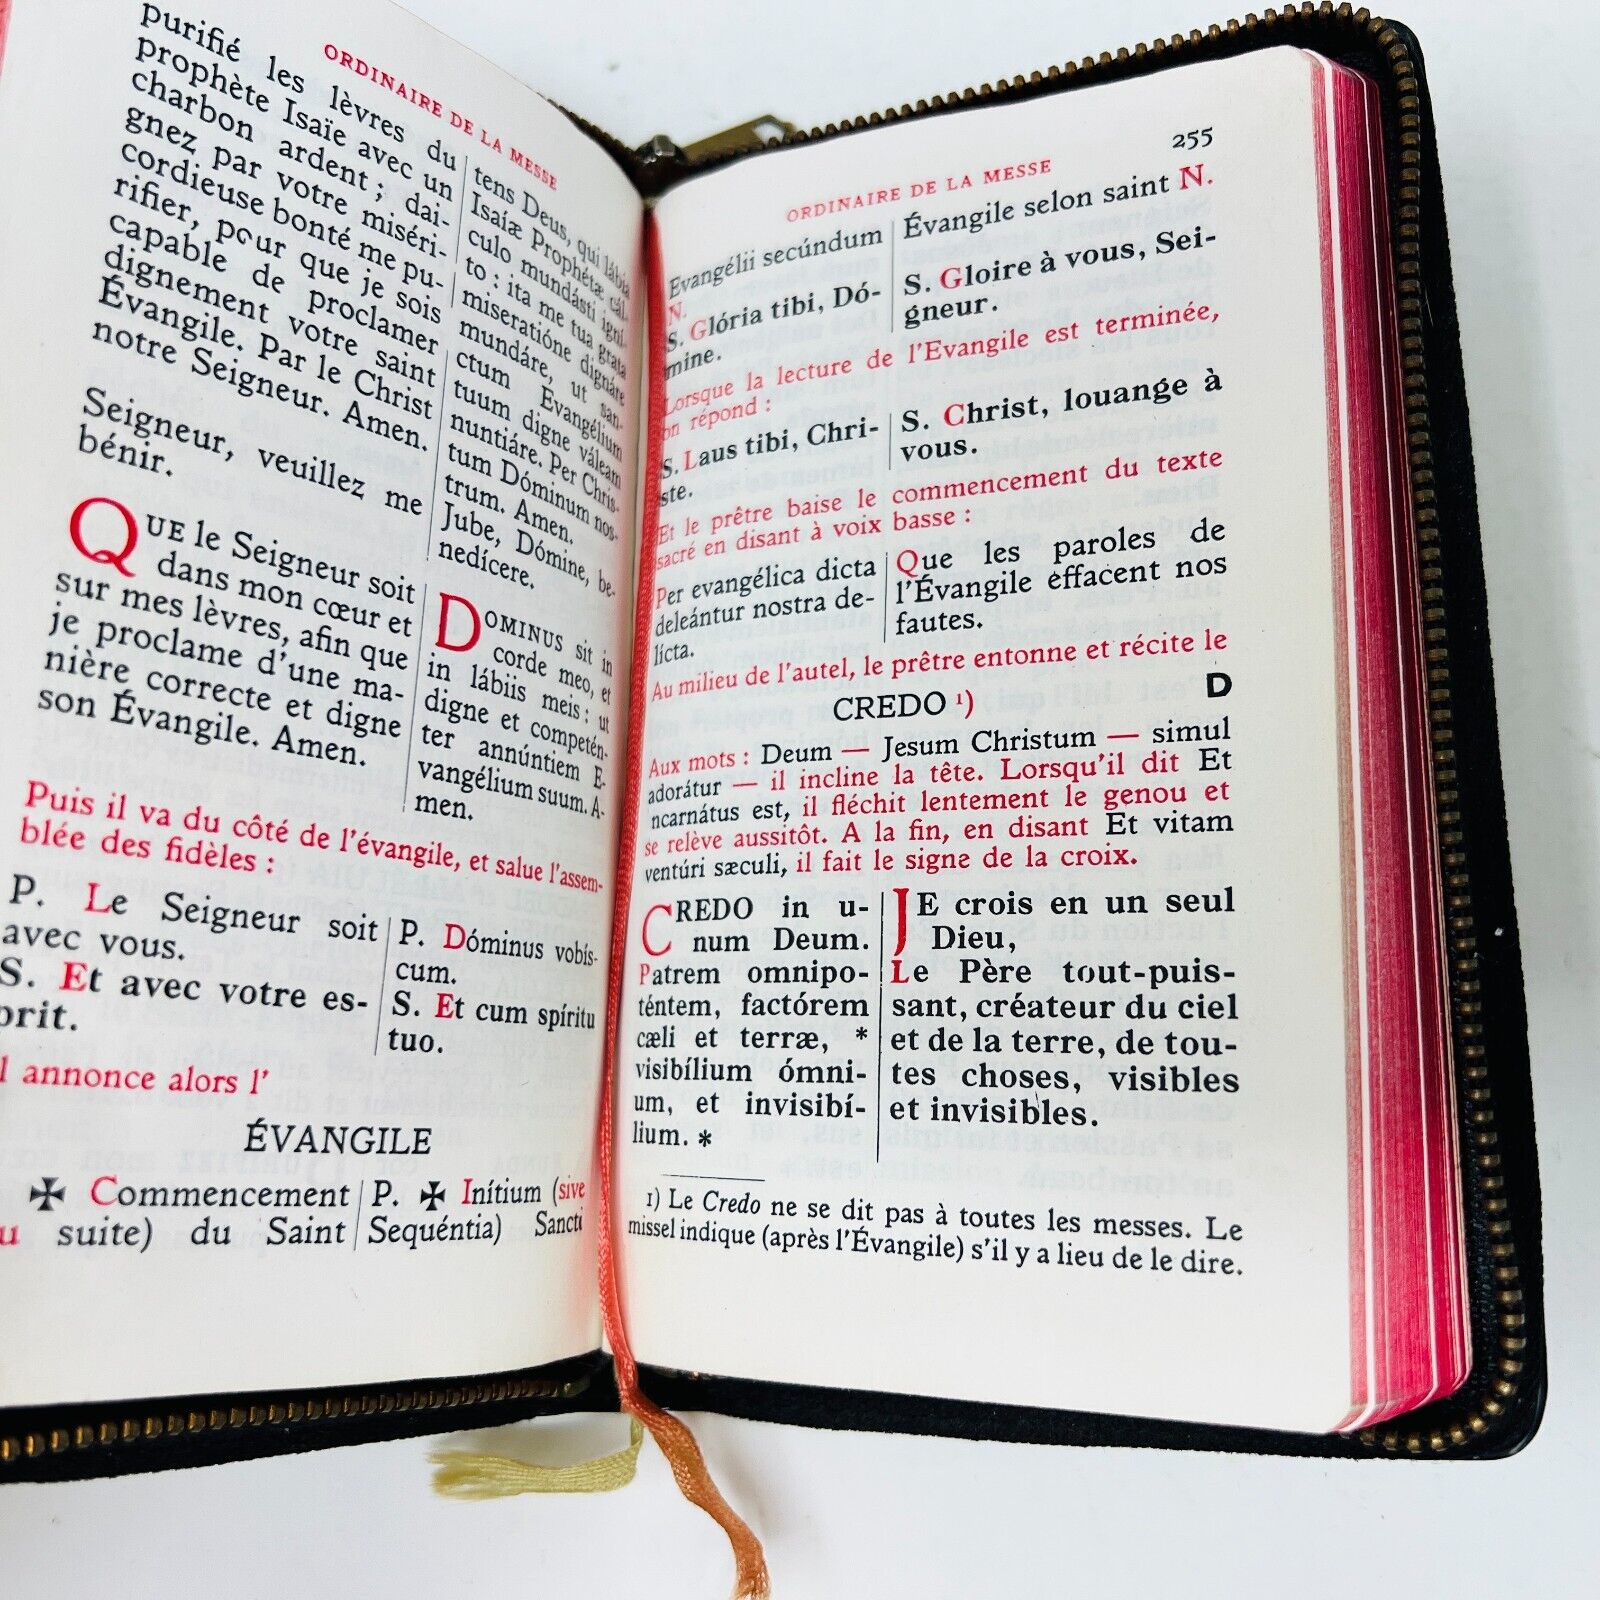 ORDINAIRE DE LA MESSE
purifié les lèvres du
prophète Isaïe avec un
charbon ardent ; dai-
gnez par votre miséri-
cordieuse bonté me pu-
rifier, pour que je sois
capable de proclamer
dignement votre saint
Évangile. Par le Christ
notre Seigneur. Amen.
Seigneur, veuillez me
bénir.
QUE le Seigneur soit
dans mon cœur et
sur mes lèvres, afin que
je proclame d'une ma-
nière correcte et digne
son Évangile. Amen.
tens Deus, qui lábia
Isaíæ Prophétæ cál-
culo mundásti igní-
to : ita me tua grata
miseratióne dignáre
mundáre, ut san-
ctum Evangélium
tuum digne váleam
nuntiáre. Per Chris-
tum Dóminum nos-
trum. Amen.
Jube, Dómine, be-
nedícere.
DOMINUS sit in
corde meo, et
in lábiis meis : ut
digne et competén-
ter annúntiem E-
vangélium suum. A-
men.
Puis il va du côté de l'évangile, et salue l'assem-
blée des fidèles :
P. Le Seigneur soit
avec vous.
S. Et avec votre es-
prit.
P. Dóminus vobís-
cum.
S. Et cum spíritu
tuo.
l annonce alors l'
ÉVANGILE
✠ Commencement
u suite) du Saint
P. ✠ Inítium (sive
Sequéntia) Sancti
255
ORDINAIRE DE LA MESSE
Evangélii secúndum
N.
S. Glória tibi, Dó-
mine.
Évangile selon saint N.
S. Gloire à vous, Sei-
gneur.
Lorsque la lecture de l'Evangile est terminée,
on répond :
S. Laus tibi, Chri-
ste.
S. Christ, louange à
vous.
Et le prêtre baise le commencement du texte
sacré en disant à voix basse :
Per evangélica dicta
deleántur nostra de-
lícta.
Que les paroles de
l'Évangile effacent nos
fautes.
Au milieu de l'autel, le prêtre entonne et récite le
CREDO ¹)
D
Aux mots : Deum — Jesum Christum — simul
adorátur — il incline la tête. Lorsqu'il dit Et
ncarnátus est, il fléchit lentement le genou et
se relève aussitôt. A la fin, en disant Et vitam
ventúri sæculi, il fait le signe de la croix.
CREDO in u-
num Deum.
Patrem omnipo-
téntem, factórem
cæli et terræ, *
visibílium ómni-
um, et invisibí-
lium. *
JE crois en un seul
Dieu,
Le Père tout-puis-
sant, créateur du ciel
et de la terre, de tou-
tes choses, visibles
et invisibles.
1) Le Credo ne se dit pas à toutes les messes. Le
missel indique (après l'Évangile) s'il y a lieu de le dire.